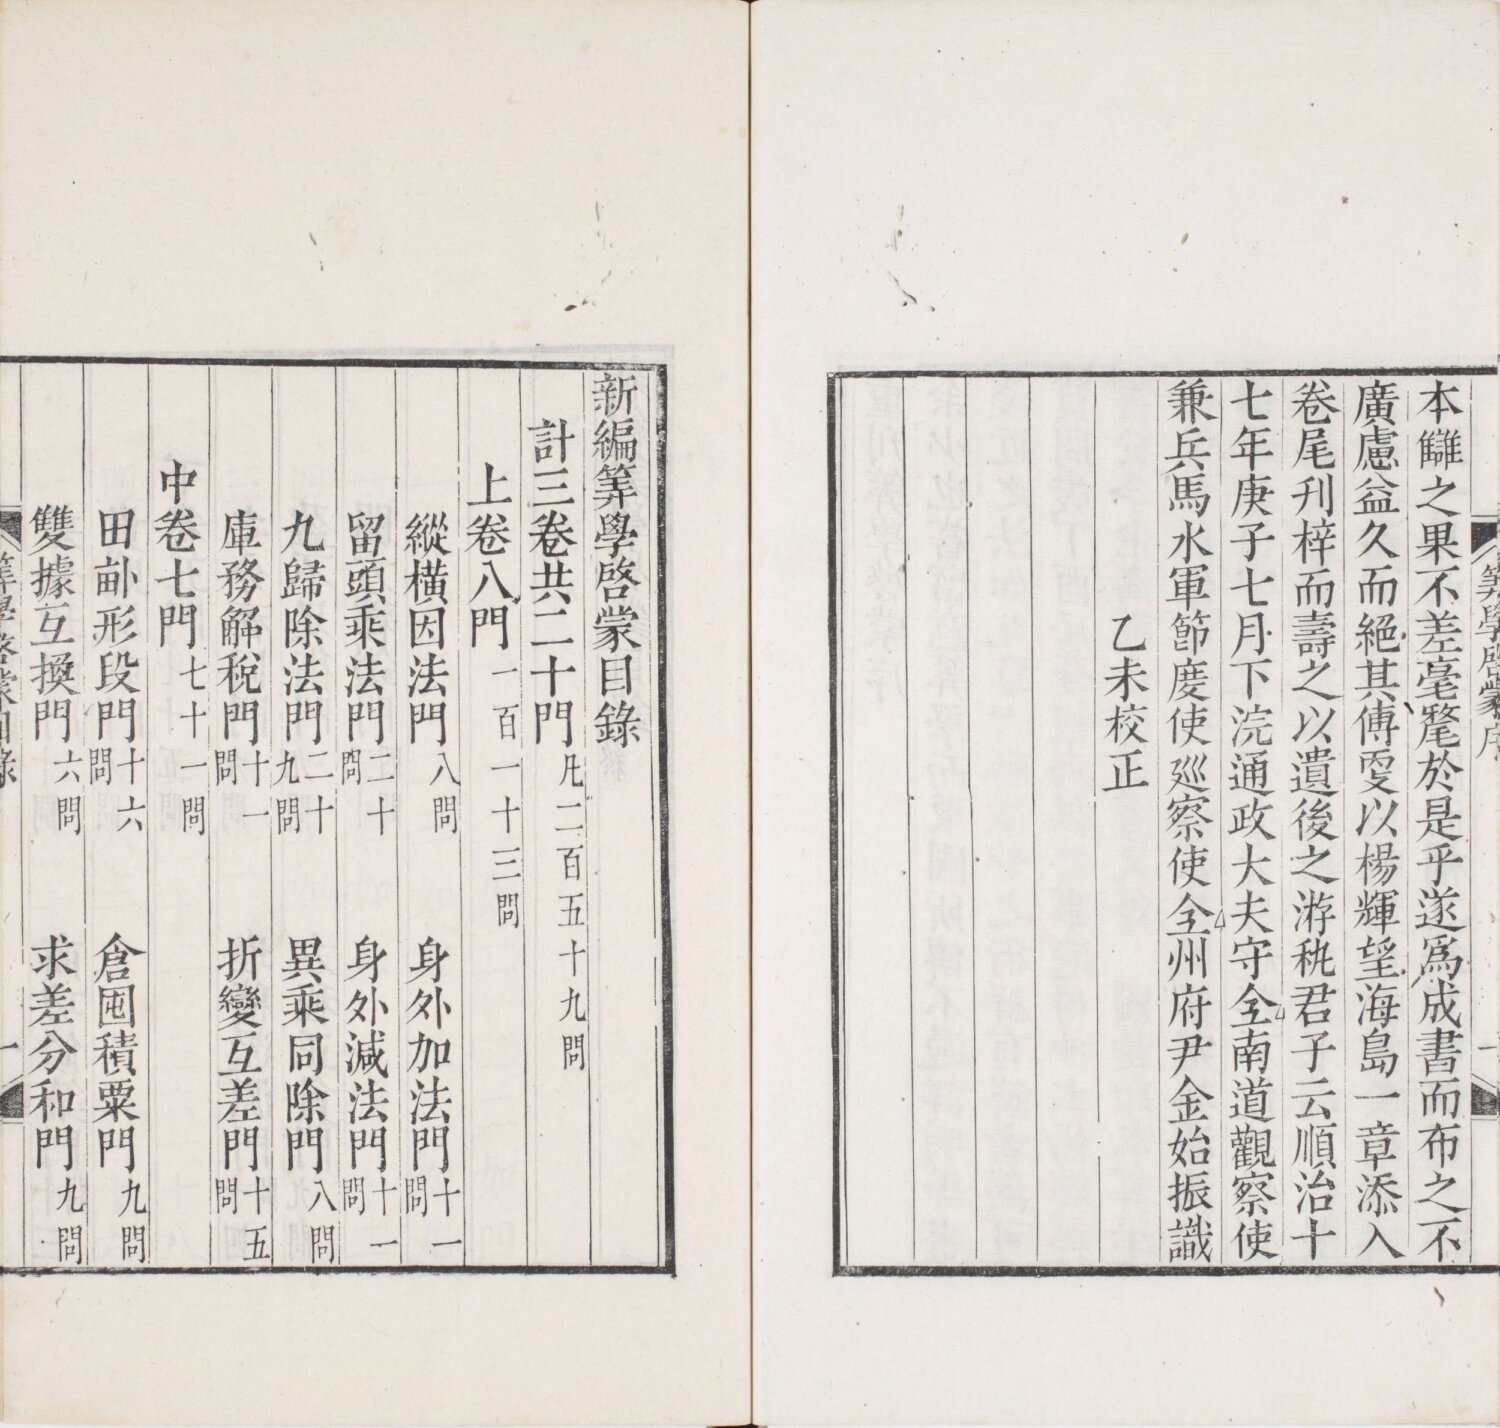 筭學啓蒙序
一
本讎之果不差毫氂於是乎遂爲成書而布之不
廣慮益久而絕其傳㪅以楊輝望海島一章添入
卷尾刋梓而壽之以遺後之游秇君子云順治十
七年庚子七月下浣通政大夫守全南道觀察使
兼兵馬水軍節慶使廵察使全州府尹金始振識
乙未校正
新編筭學啓蒙目錄
計三卷共二十門凡二百五十九問
上卷八門一百一十三問
縱橫因法門八問 身外加法門十一問
留頭乘法門二十問 身外減法門十一問
九歸除法門二十九問 異乘同除門八問
庫務解稅門十一問 折變互差門十五問
中卷七門七十一問
田畝形段門十六問 倉囤積粟門九問
雙據互換門六問 求差分和門九問
筭學啓蒙目錄
一